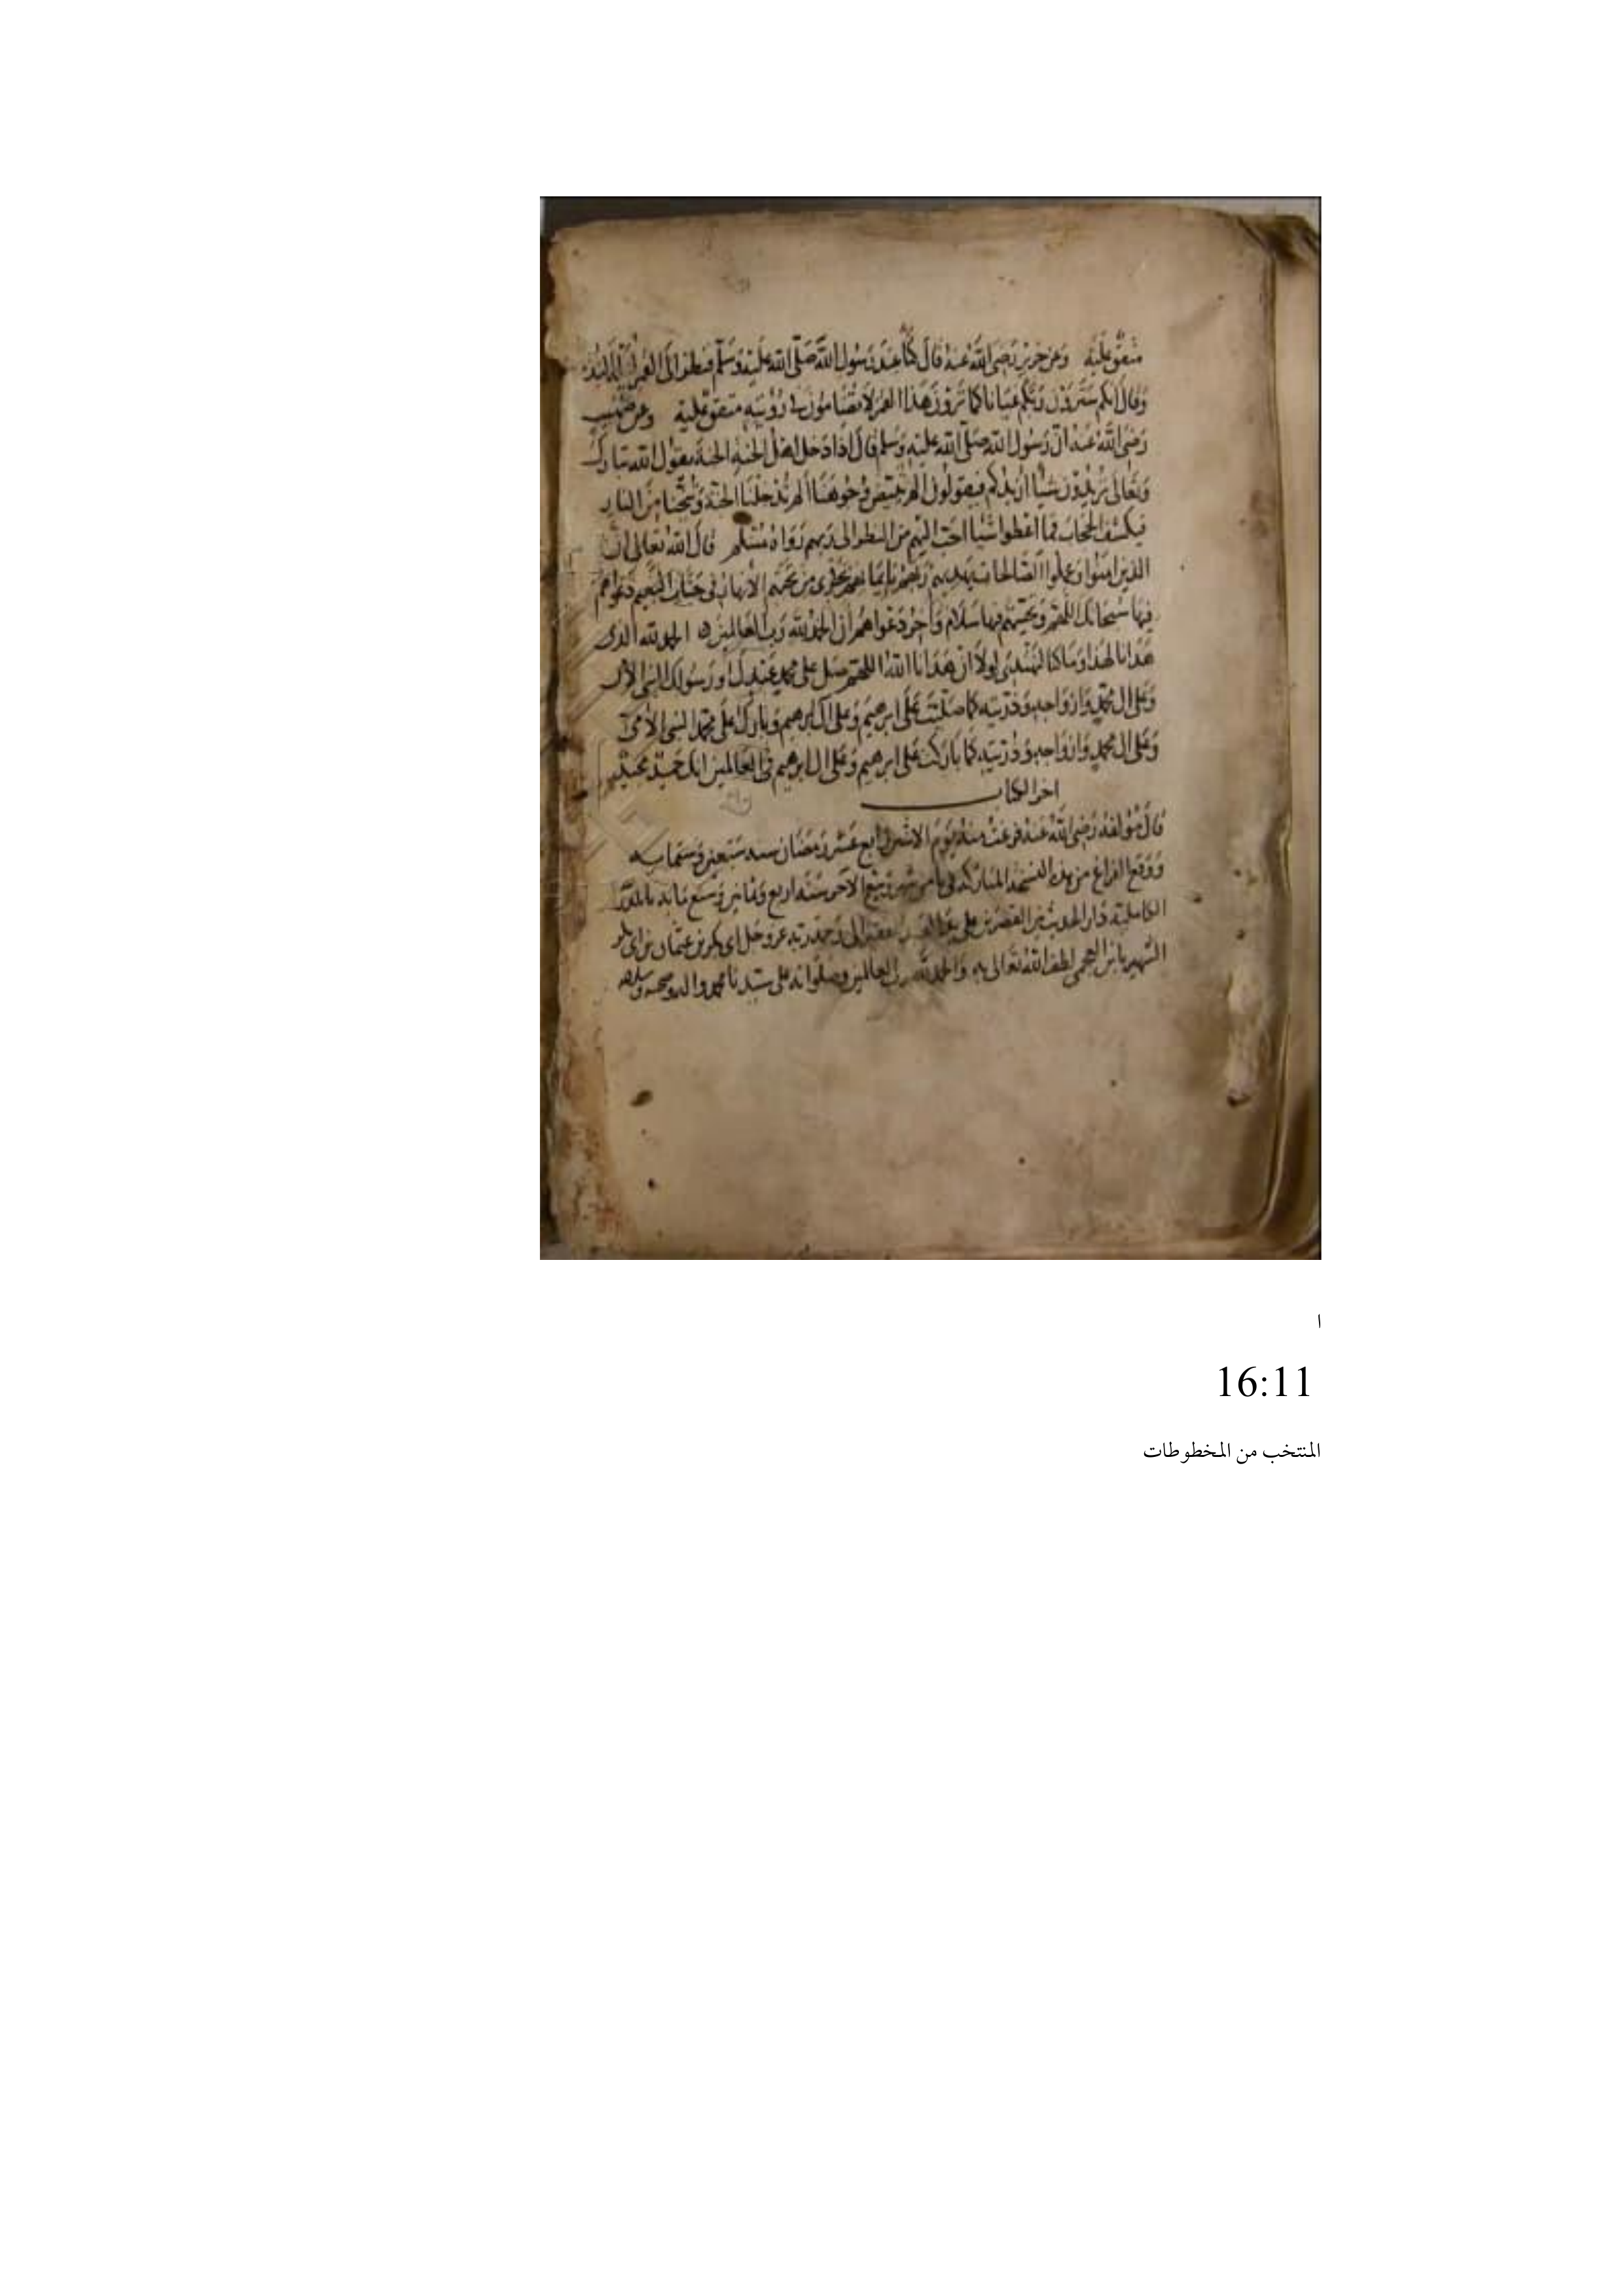 متفق عليه وعن جرير رضي الله عنه قال كنا عند رسول الله صلى الله عليه وسلم فنظر الى القمر ليلة البدر
وقال انكم سترون ربكم عيانا كما ترون هذا القمر لا تضامون في رؤيته متفق عليه وعن صهيب
رضي الله عنه ان رسول الله صلى الله عليه وسلم قال اذا دخل اهل الجنة الجنة يقول الله تبارك
وتعالى تريدون شيئا ازيدكم فيقولون الم تبيض وجوهنا الم تدخلنا الجنة وتنجنا من النار
فيكشف الحجاب فما اعطوا شيئا احب اليهم من النظر الى ربهم رواه مسلم قال الله تعالى ان
الذين امنوا وعملوا الصالحات يهديهم ربهم بايمانهم تجري من تحتهم الانهار في جنات النعيم دعواهم
فيها سبحانك اللهم وتحيتهم فيها سلام واخر دعواهم ان الحمد لله رب العالمين الحمد لله الذي
هدانا لهذا وما كنا لنهتدي لولا ان هدانا الله اللهم صل على محمد عبدك ورسولك النبي الامي
وعلى ال محمد وازواجه وذريته كما صليت على ابرهيم وعلى ال ابرهيم وبارك على محمد النبي الامي
وعلى ال محمد وازواجه وذريته كما باركت على ابرهيم وعلى ال ابرهيم في العالمين انك حميد مجيد
اخر الكتاب
قال مؤلفه رضي الله عنه فرغت منه يوم الاثنين رابع عشر رمضان سنه سبعين وستمايه
ووقع الفراغ من هذه النسخه المباركه في شهر ربيع الاخر سنه اربع وثمانين وسبع مايه
الكاملية دار الحديث بين القصرين على يد الى رحمة ربه عز وجل ابي بكر بن عثمان بن
الشهير بابن العجمي لطف الله تعالى به والحمد لله رب العالمين وصلواته على سيدنا محمد واله وصحبه وسلامه
ا
16:11
المنتخب من المخطوطات